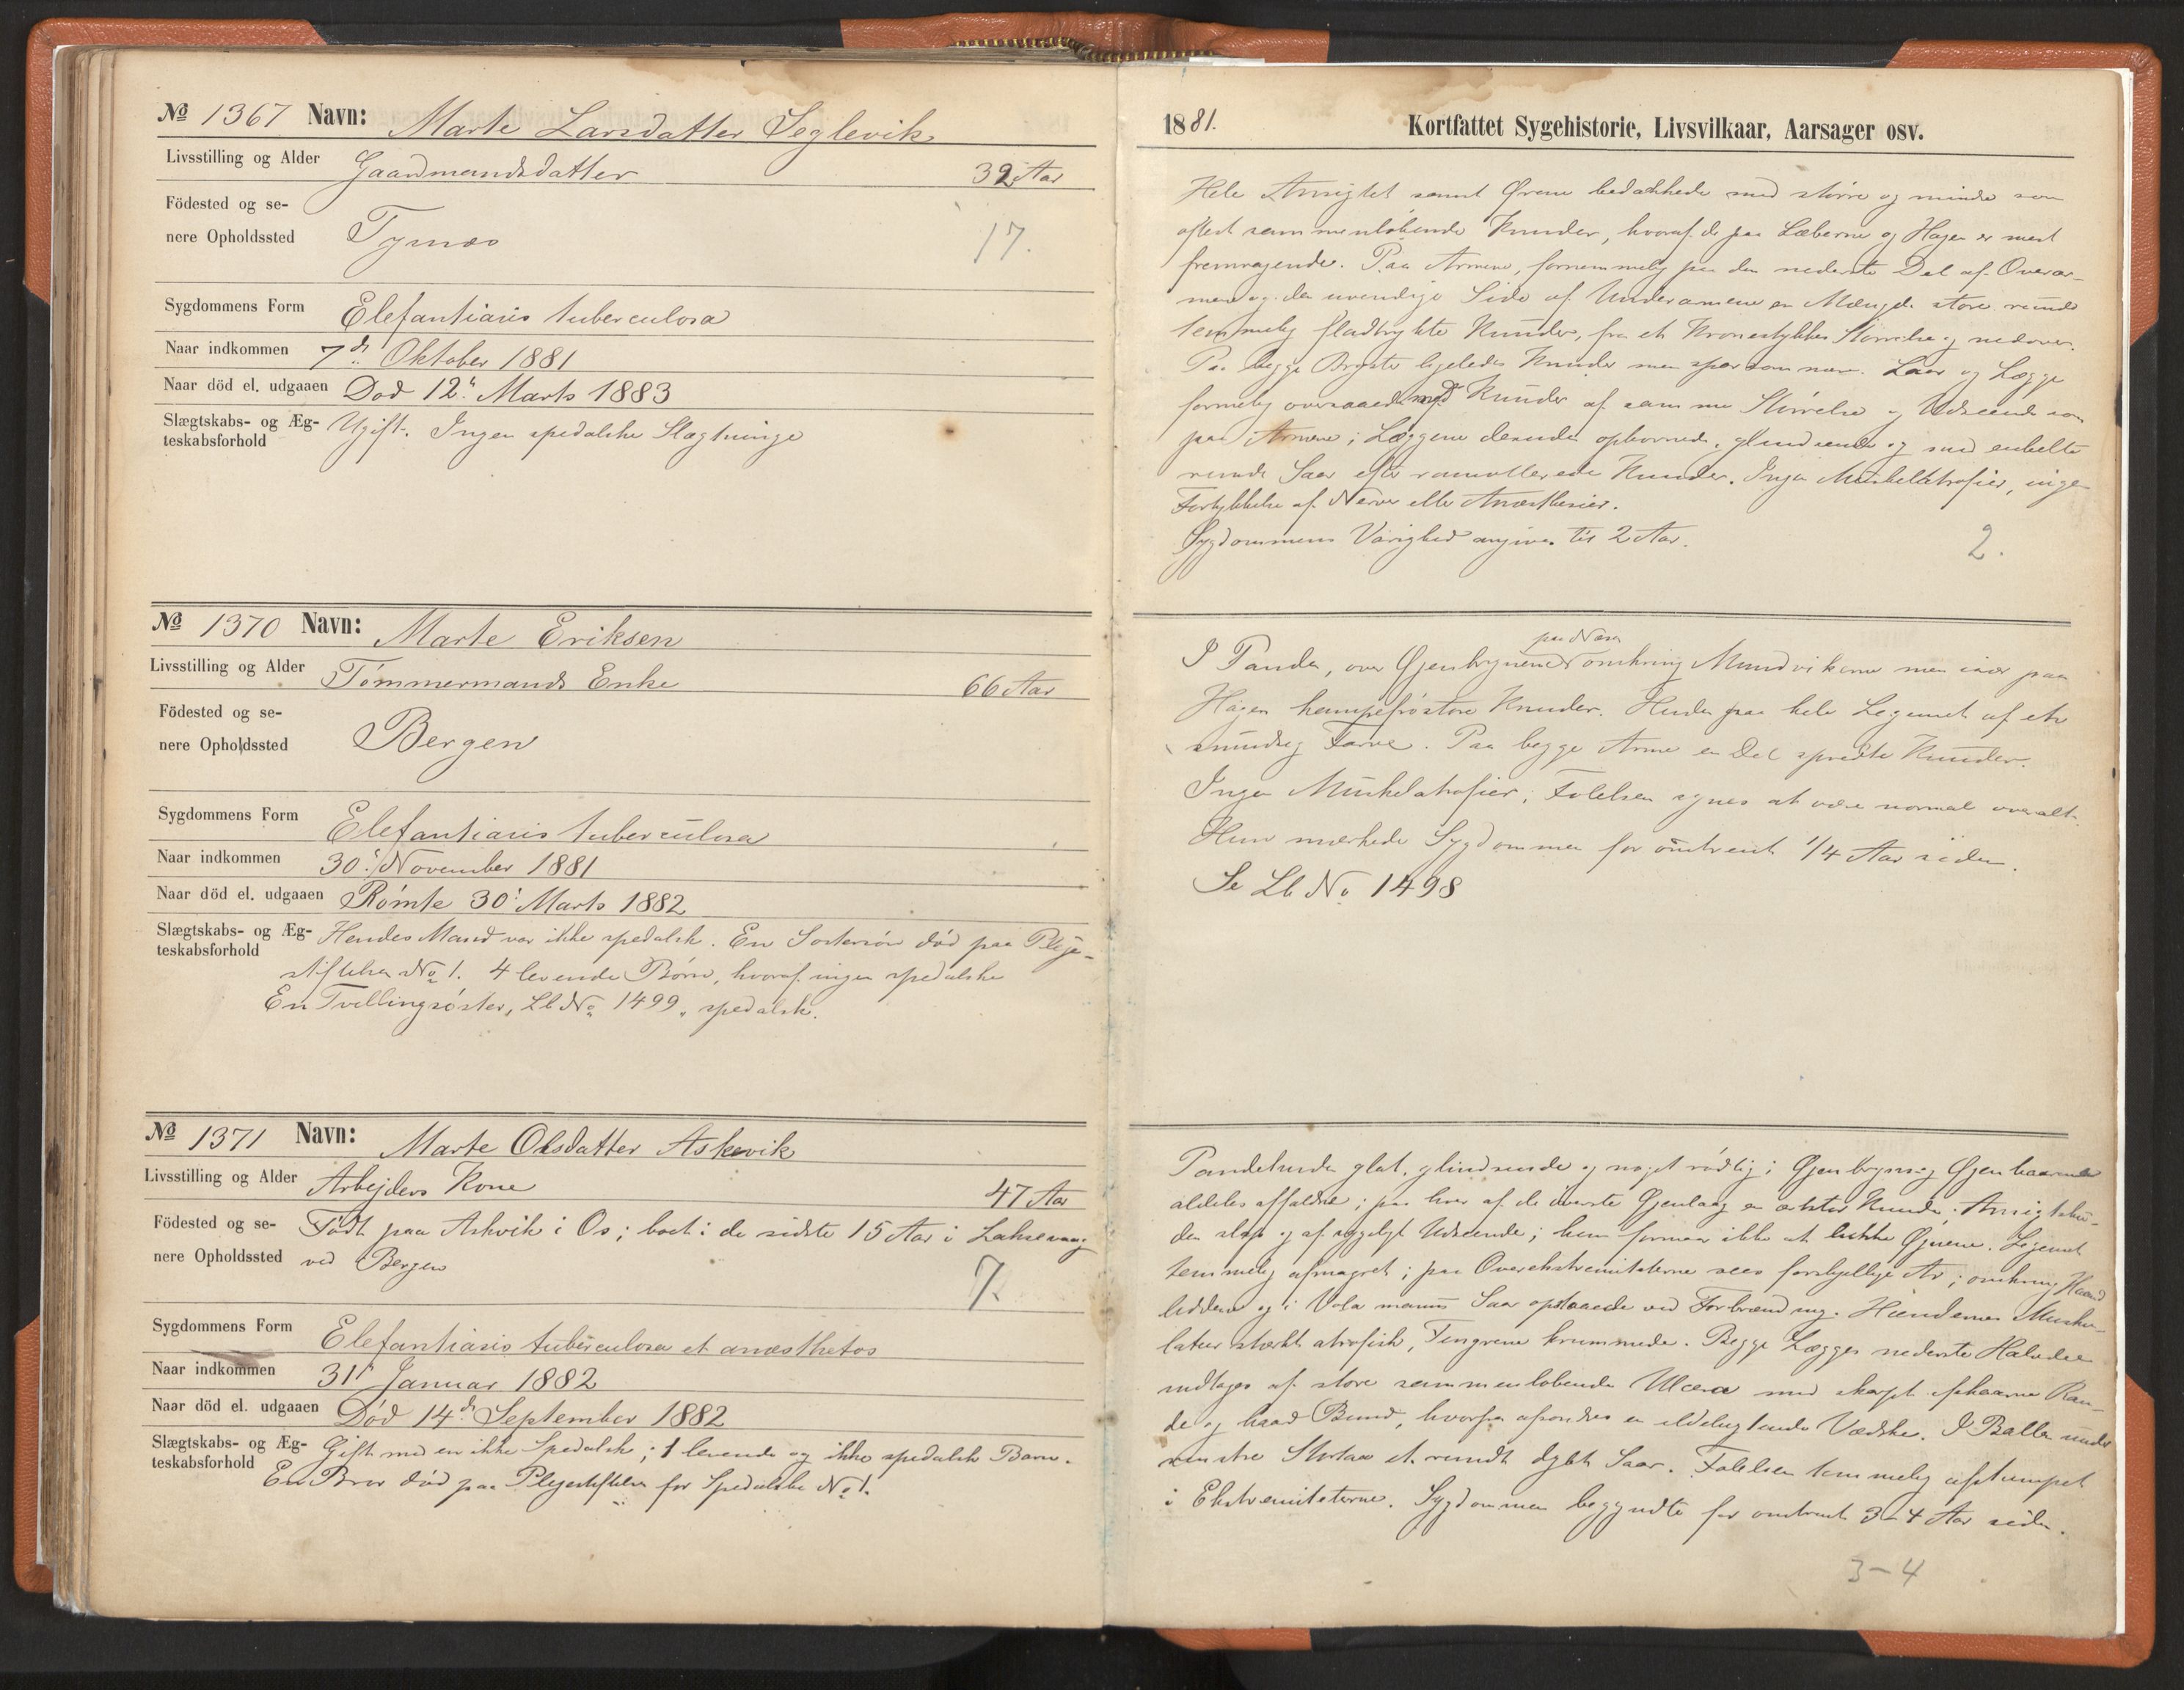 No 1367 Navn: Marte Larsdatter Seglevik
Livsstilling og Alder Gaardmandsdatter 32 Aar
Födested og se-
nere Opholdssted Tysnæs 17.
Sygdommens Form Elefantiasis tuberculosa
Naar indkommen 7de Oktober 1881
Naar död el. udgaaen Død 12te Marts 1883
Slægtskabs- og Æg-
teskabsforhold Ugift. Ingen spedalske Slægtninge
No 1370 Navn: Marte Eriksen
Livsstilling og Alder Tömmermands Enke 66 Aar
Födested og se-
nere Opholdssted Bergen
Sygdommens Form Elefantiasis tuberculosa
Naar indkommen 30te November 1881
Naar död el. udgaaen Römte 30te Marts 1882
Slægtskabs- og Æg-
teskabsforhold Hendes Mand var ikke spedalsk. En Søstersön död paa Pleje-
stiftelsen No 1. 4 levende Börn, hvoraf ingen spedalske
En Tvillingsöster, Lb No 1499, spedalsk.
No 1371 Navn: Marte Olsdatter Askevik
Livsstilling og Alder Arbejders Kone 47 Aar
Födested og se- Födt paa Askvik i Os; boet i de sidste 15 Aar i Laksevaag
nere Opholdssted ved Bergen 7.
Sygdommens Form Elefantiasis tuberculosa et anæsthetos
Naar indkommen 31te Januar 1882
Naar död el. udgaaen Död 14de September 1882
Slægtskabs- og Æg-
teskabsforhold Gift med en ikke Spedalsk; 1 levende og ikke spedalsk Barn.
En Bror död paa Plejestiftelsen for Spedalske No 1.
1881. Kortfattet Sygehistorie, Livsvilkaar, Aarsager osv.
Hele Ansigtet samt Ørene bedækkede med större og mindre som
oftest sammenlöbende Knuder, hvoraf de paa Læberne og Hagen er mest
fremragende. Paa Armene, fornemmelig paa den nederste Del af Overar-
mene og den udvendige Side af Underarmene en Mængde store runde
temmelig fladtrykte Knuder, fra et Kronestykkes Störrelse og nedover.
Paa begge Bryster ligeledes Knuder men sparsommere. Laar og Lægge
formelig oversaaede med Knuder af samme Störrelse og Udseende som
paa Armene; Læggene desuden ophovnede, glindsende og med enkelte
runde Saar efter ramollerede Knuder. Ingen Muskelatrofier, ingen
Fortykkelse af Nerver eller Anæsthesier.
Sygdommens Varighed angives til 2 Aar. 2.
paa Næsen
I Panden, over Øjenbrynene omkring Mundvikerne men især paa
Hagen hampefröstore Knuder. Huden paa hele Legemet af en
smudsig Farve. Paa begge Arme en Del spredte Knuder.
Ingen Muskelatrofier; Følelsen synes at være normal overalt.
Hun mærkede Sygdommen for omtrent 1/4 Aar siden.
Se Lb No 1498
Pandehuden glat, glindsende og noget rödlig; Øjenbryn og Øjenhaarene
aldeles affaldne; paa hver af de överste Øjenlaag en Knude. Ansigtshu-
den slap og af sygeligt Udseende; hun formaar ikke at lukke Øjnene. Legemet
temmelig afmagret; paa Overekstremiteterne sees forskjellige Ar; omkring Haand
leddene og i Vola manus Saar opstaaede ved Forbrænding. Hændernes Musku-
latur stærkt atrofisk, Fingrene krummede. Begge Lægges nederste Halvdel
indtages af store sammenlöbende Ulcera med skarpt afskaarne Ran-
de og haard Bund, hvorfra afsondres en ildelugtende Vædske. I Ballen under
venstre Stortaa et rundt dybt Saar. Følelsen temmelig afstumpet
i Ekstremiteterne. Sygdommen begyndte for omtrent 3-4 Aar siden.
3-4